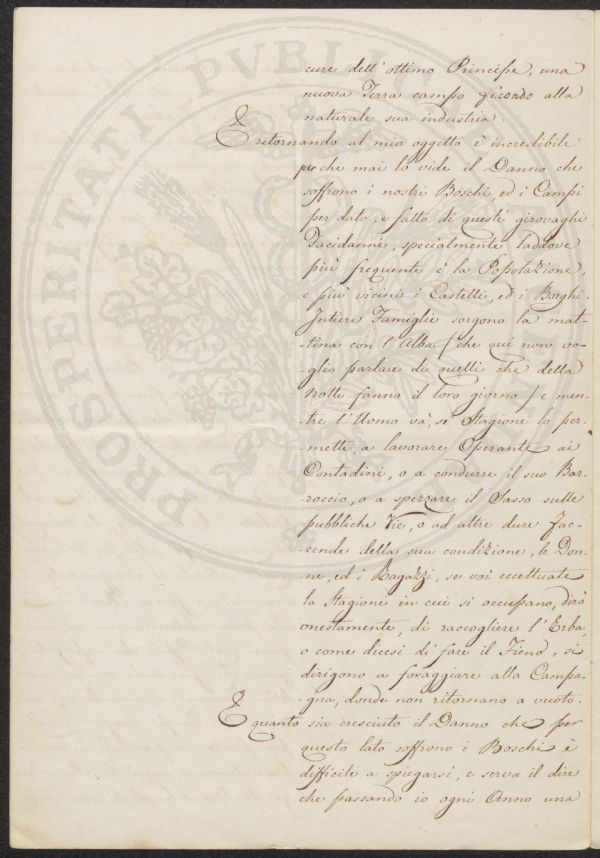 cure dell' ottimo Principe, una
nuova Terra campo fecondo alla
naturale sua industria.
E ritornando al mio oggetto è incredibile
per chi mai lo vide il Danno che
soffrono i nostri Boschi, ed i Campi
per dato, e fatto di questi girovaghi
Facidanni, specialmente laddove
più frequente è la Popolazione,
e più vicini i Castelli, ed i Borghi.
Intiere Famiglie sorgono la mat-
-tina con l'Alba (che qui non vo-
glio parlare di quelli che della
Notte fanno il loro giorno) e men-
-tre l'Uomo và, se Stagione lo per-
-mette, a lavorare Operante ai
Contadini, o a condurre il suo Bar-
roccio, o a spezzare il Sasso sulle
pubbliche Vie, o ad altre dure fac-
-cende della sua condizione, le Don-
-ne, ed i Ragazzi, se voi eccettuate
la Stagione in cui si occupano, dirò
onestamente, di raccogliere l'Erba,
o come dicesi di fare il Fieno, si
dirigono a foraggiare alla Campa-
-gna, donde non ritornano a vuoto.
E quanto sia cresciuto il Danno che per
questo lato soffrono i Boschi è
difficile a spiegarsi, e serva il dire
che passando io ogni Anno una
PROSPERITATI PVBLICAE